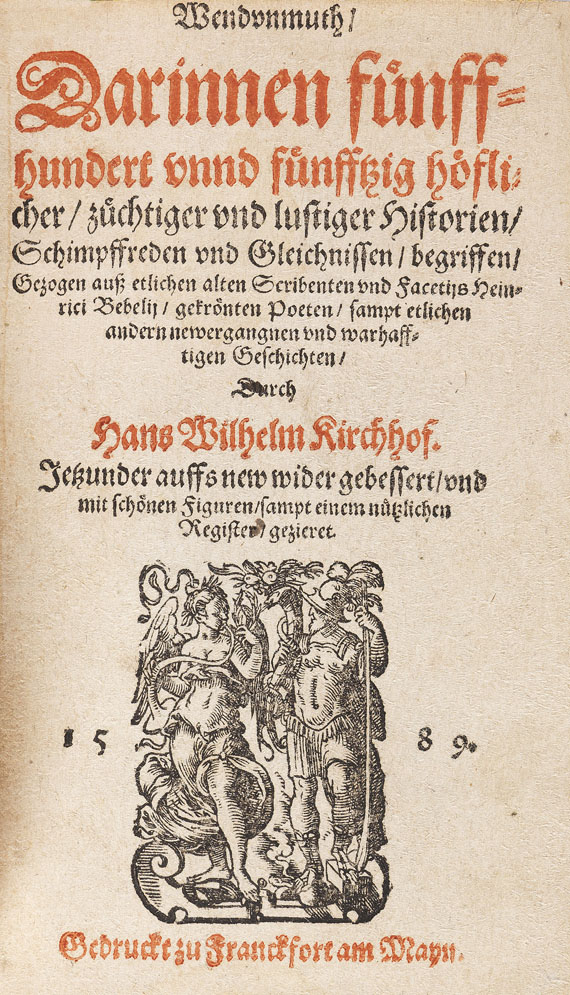 Wendvnmuth/
Darinnen fünff-
hundert vnnd fünfftzig höfli-
cher/ züchtiger vnd lustiger Historien/
Schimpffreden vnd Gleichnissen/ begriffen/
Gezogen auß etlichen alten Scribenten vnd Facetijs Hein-
rici Bebelij/ gekrönten Poeten/ sampt etlichen
andern newergangnen vnd warhaff-
tigen Geschichten/
Durch
Hans Wilhelm Kirchhof.
Jetzunder auffs new wider gebessert/ vnd
mit schönen Figuren/ sampt einem nützlichen
Register/ gezieret.
1589.
Gedruckt zu Franckfort am Mayn.